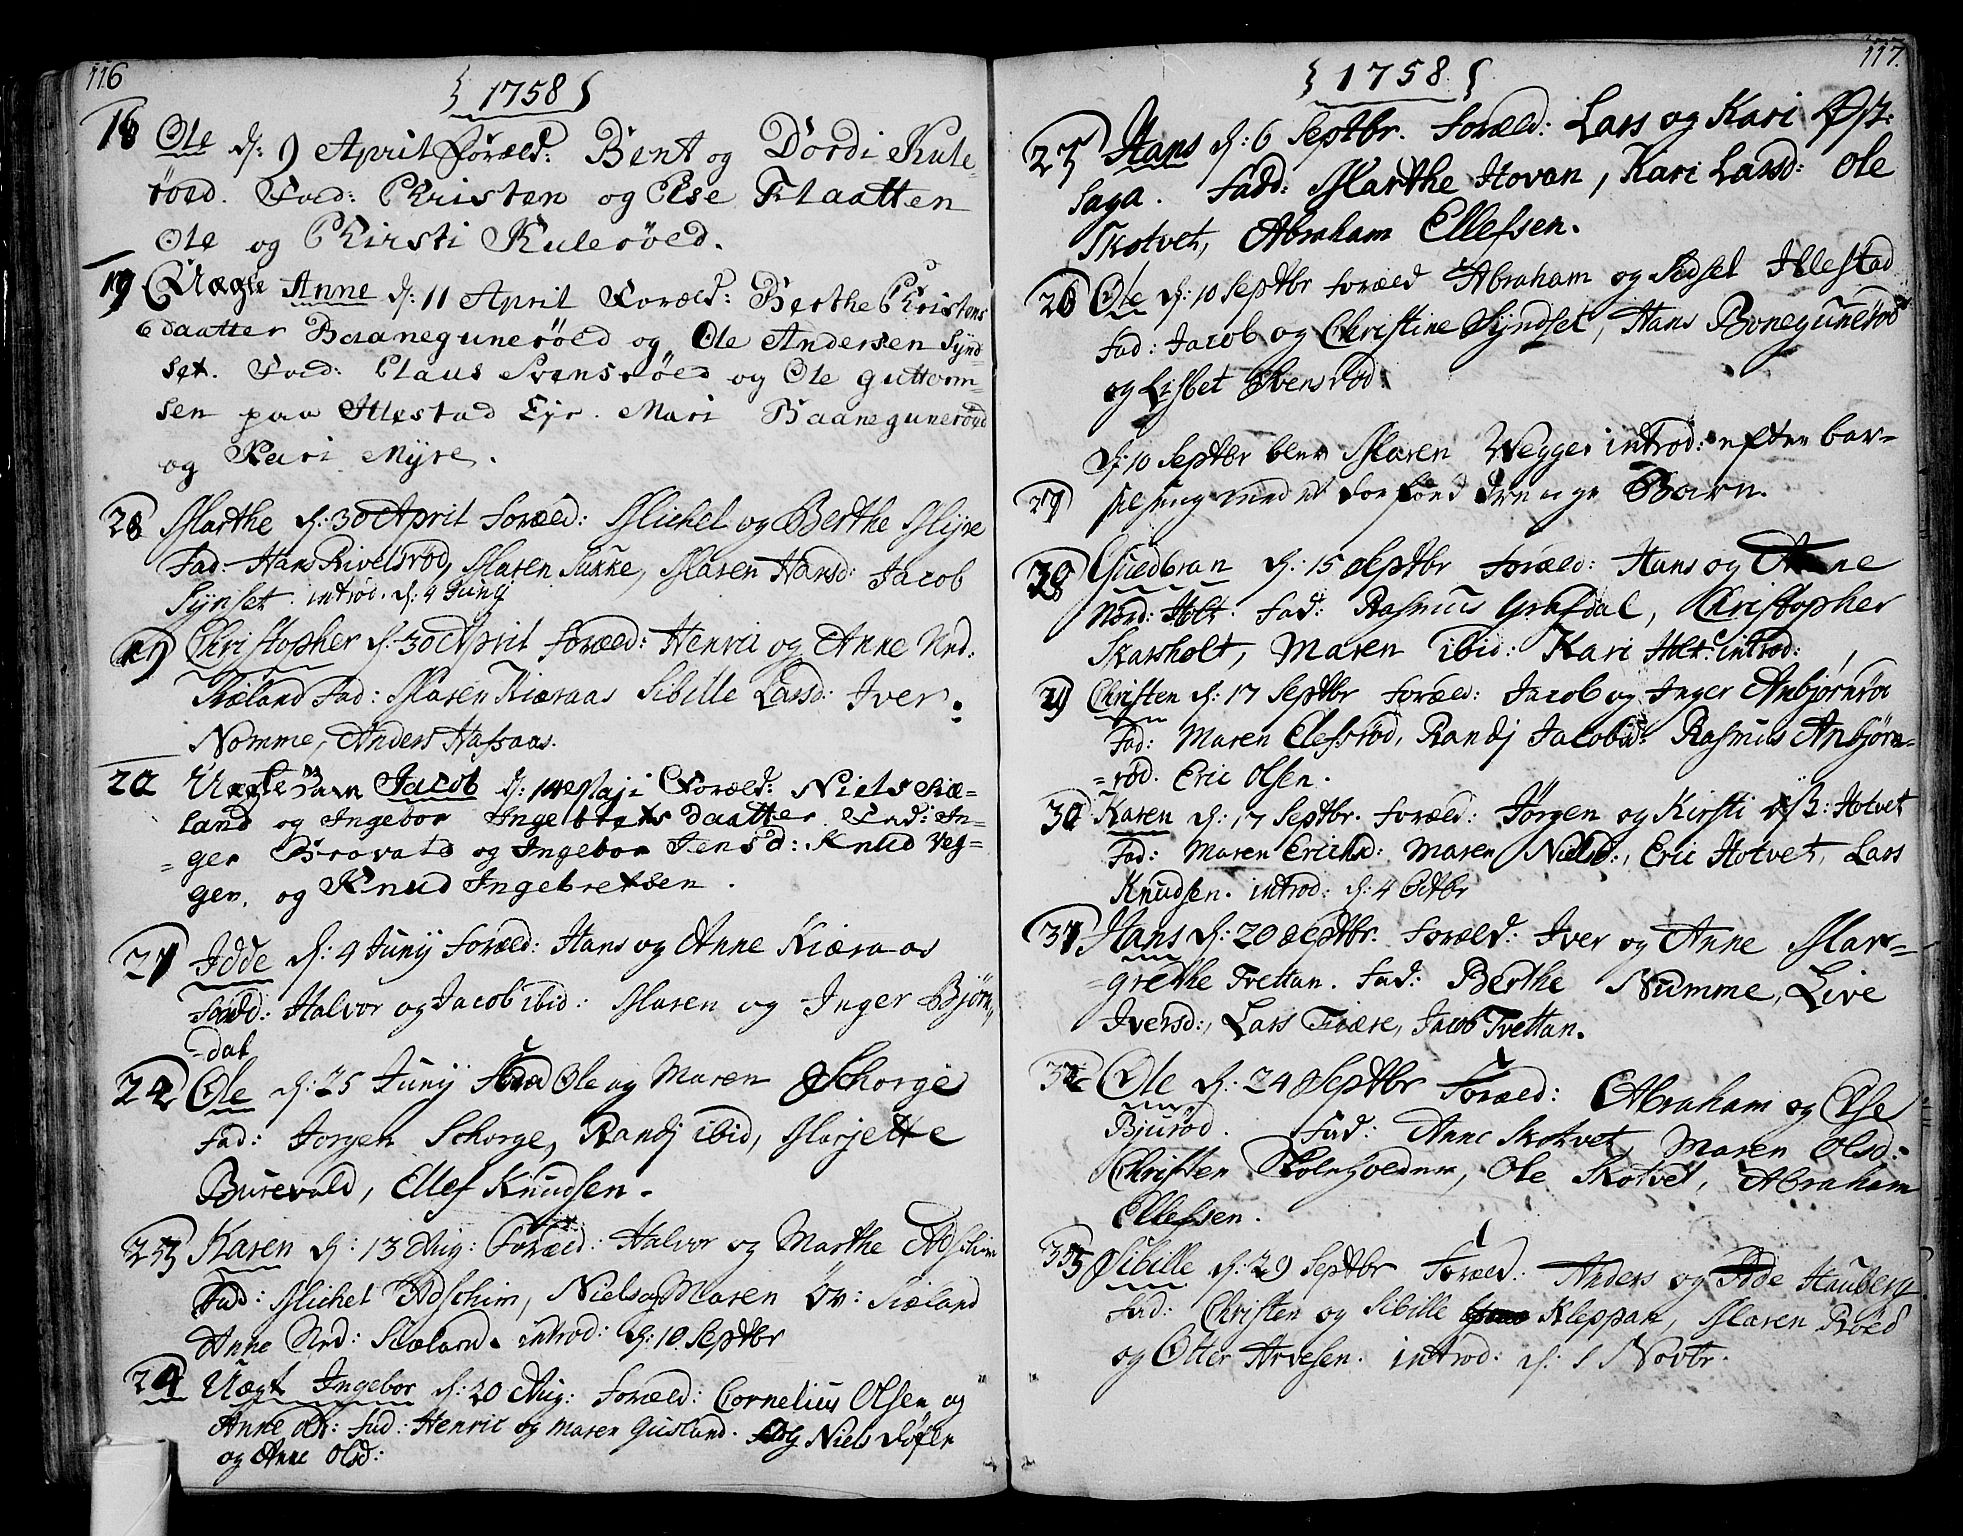 116
1758
16 Ole d: 9 April Foræld: Bent og Dordi Kule-
röed. Fad: Christen og Else Flaatten
Ole og Chirsti Kuleröed.
19 Uægte Anne d: 11 April Foræld: Berthe Christens
daatter Baaneguneröed og Ole Andersen Synd
set. Fad: Claus Svensröed og Ole Guttorm-
sen paa Illestad Eje. Mari Baaneguneröed
og Kari Myre.
28 Marthe d: 30 April Foræld: Michel og Berthe Myre
Fad: Hans Rivelsröd, Maren Sukke, Maren Hansd: Jacob
Synset. introd. d: 4 Junij
19 Christopher d: 30 April Foræld: Henric og Anne Nrd.
Siæland Fad: Maren Kiæraas Sibille Larsd: Iver
Nomme, Anders Aafsaas.
20 Uægte Barn Jacob d: 14 Maji Foræld: Niels Siæ-
land og Ingebor Ingebrets daatter Fad: In-
ger Bravald og Ingebor Jensd: Knud Veg-
gen, og Knud Ingebretsen.
21 Idde d: 4 Junij Foræld: Hans og Anne Kiæraas
Fadd: Halvor og Jacob ibid: Maren og Inger Björn
dal
22 Ole d: 25 Junij Foræ Ole og Maren Schorge
Fad: Jorgen Schorge, Randj ibid, Marjette
Burevald, Ellef Knudsen.
23 Karen d: 13 Aug: Foræld: Halvor og Marthe Adschim
Fad: Michel Adschim, Niels og Maren Öv: Siæland
Anne Nrd: Siæland. introd: d: 10 Septbr
24 Uægt Ingebor d: 20 Aug: Foræld: Cornelius Olsen og
Anne Fad: Henric og Maren Gusland. Niels
og Anne Olsd:
117.
1758
25 Hans d: 6 Septbr. Foræld: Lars og Kari Øst:
Saga. Fadd: Marthe Hovan, Kari Larsd: Ole
Skotvet, Abraham Ellefsen.
26 Ole d: 10 Septbr Foræld Abraham og Sidsel Illestad
Fad: Jacob og Christine Syndset, Hans Boneguneröd
og Lisbet Svensröd.
d: 10 Septbr blev Maren Wegger introd: efter bar-
27 sel seng med et Barn.
28 Guedbran d: 15 Septbr Foræld: Hans og Anne
Nord: Holt. Fad: Rasmus Grafdal, Christopher
Skarsholt, Maren ibid: Kari Holt. introd:
29 Christen d: 17 Septbr Foræld: Jacob og Inger Anbjörnröd
Fad: Maren Elefsröd, Randj Jacobsd: Rasmus Anbjörn-
röd. Eric Olsen.
30 Karen d: 17 Septbr. Foræld: Jörgen og Kirsti Øst: Hotvet
Fad: Maren Ericksd: Maren Nielsd:, Eric Hotvet, Lars
Knudsen. introd: d: 4 Octbr
31 Hans d: 20 Septbr. Foræld: Iver og Anne Mar-
grethe Tvettan. Fad: Berthe Numme, Live
Iversd:, Lars Tvære, Jacob Tvettan.
32 Ole d: 24 Septbr Foræld: Abraham og Else
Bjuröd. Fad: Anne Skotvet, Maren Olsd:
Christen, Ole Skotvet, Abraham
Ellefsen.
33 Sibille d: 29 Septbr Foræld: Anders og Idde Hauberg.
Fad: Christen og Sibille Kleppan, Maren Röed
og Otter Arvesen. introd: d: 1 Novbr.